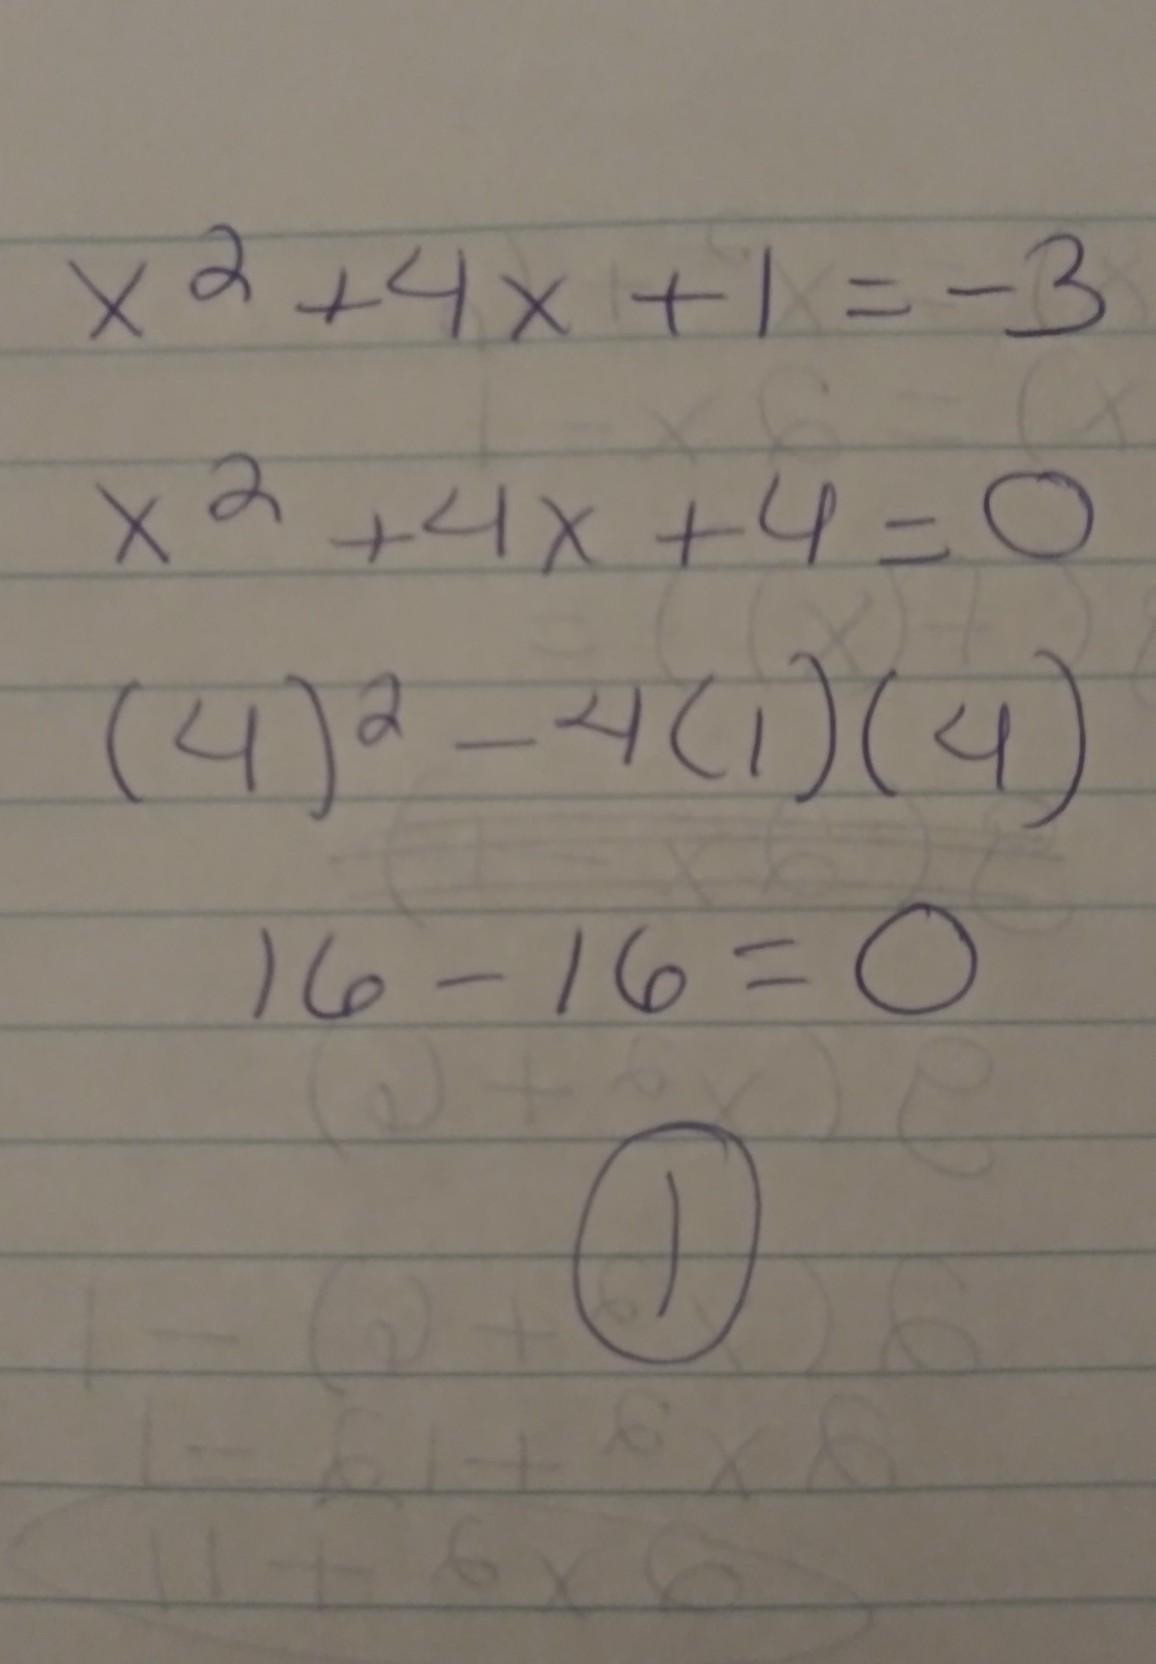 x² + 4x + 1 = -3
x² + 4x + 4 = 0
(4)² - 4(1)(4)
16 - 16 = 0
1